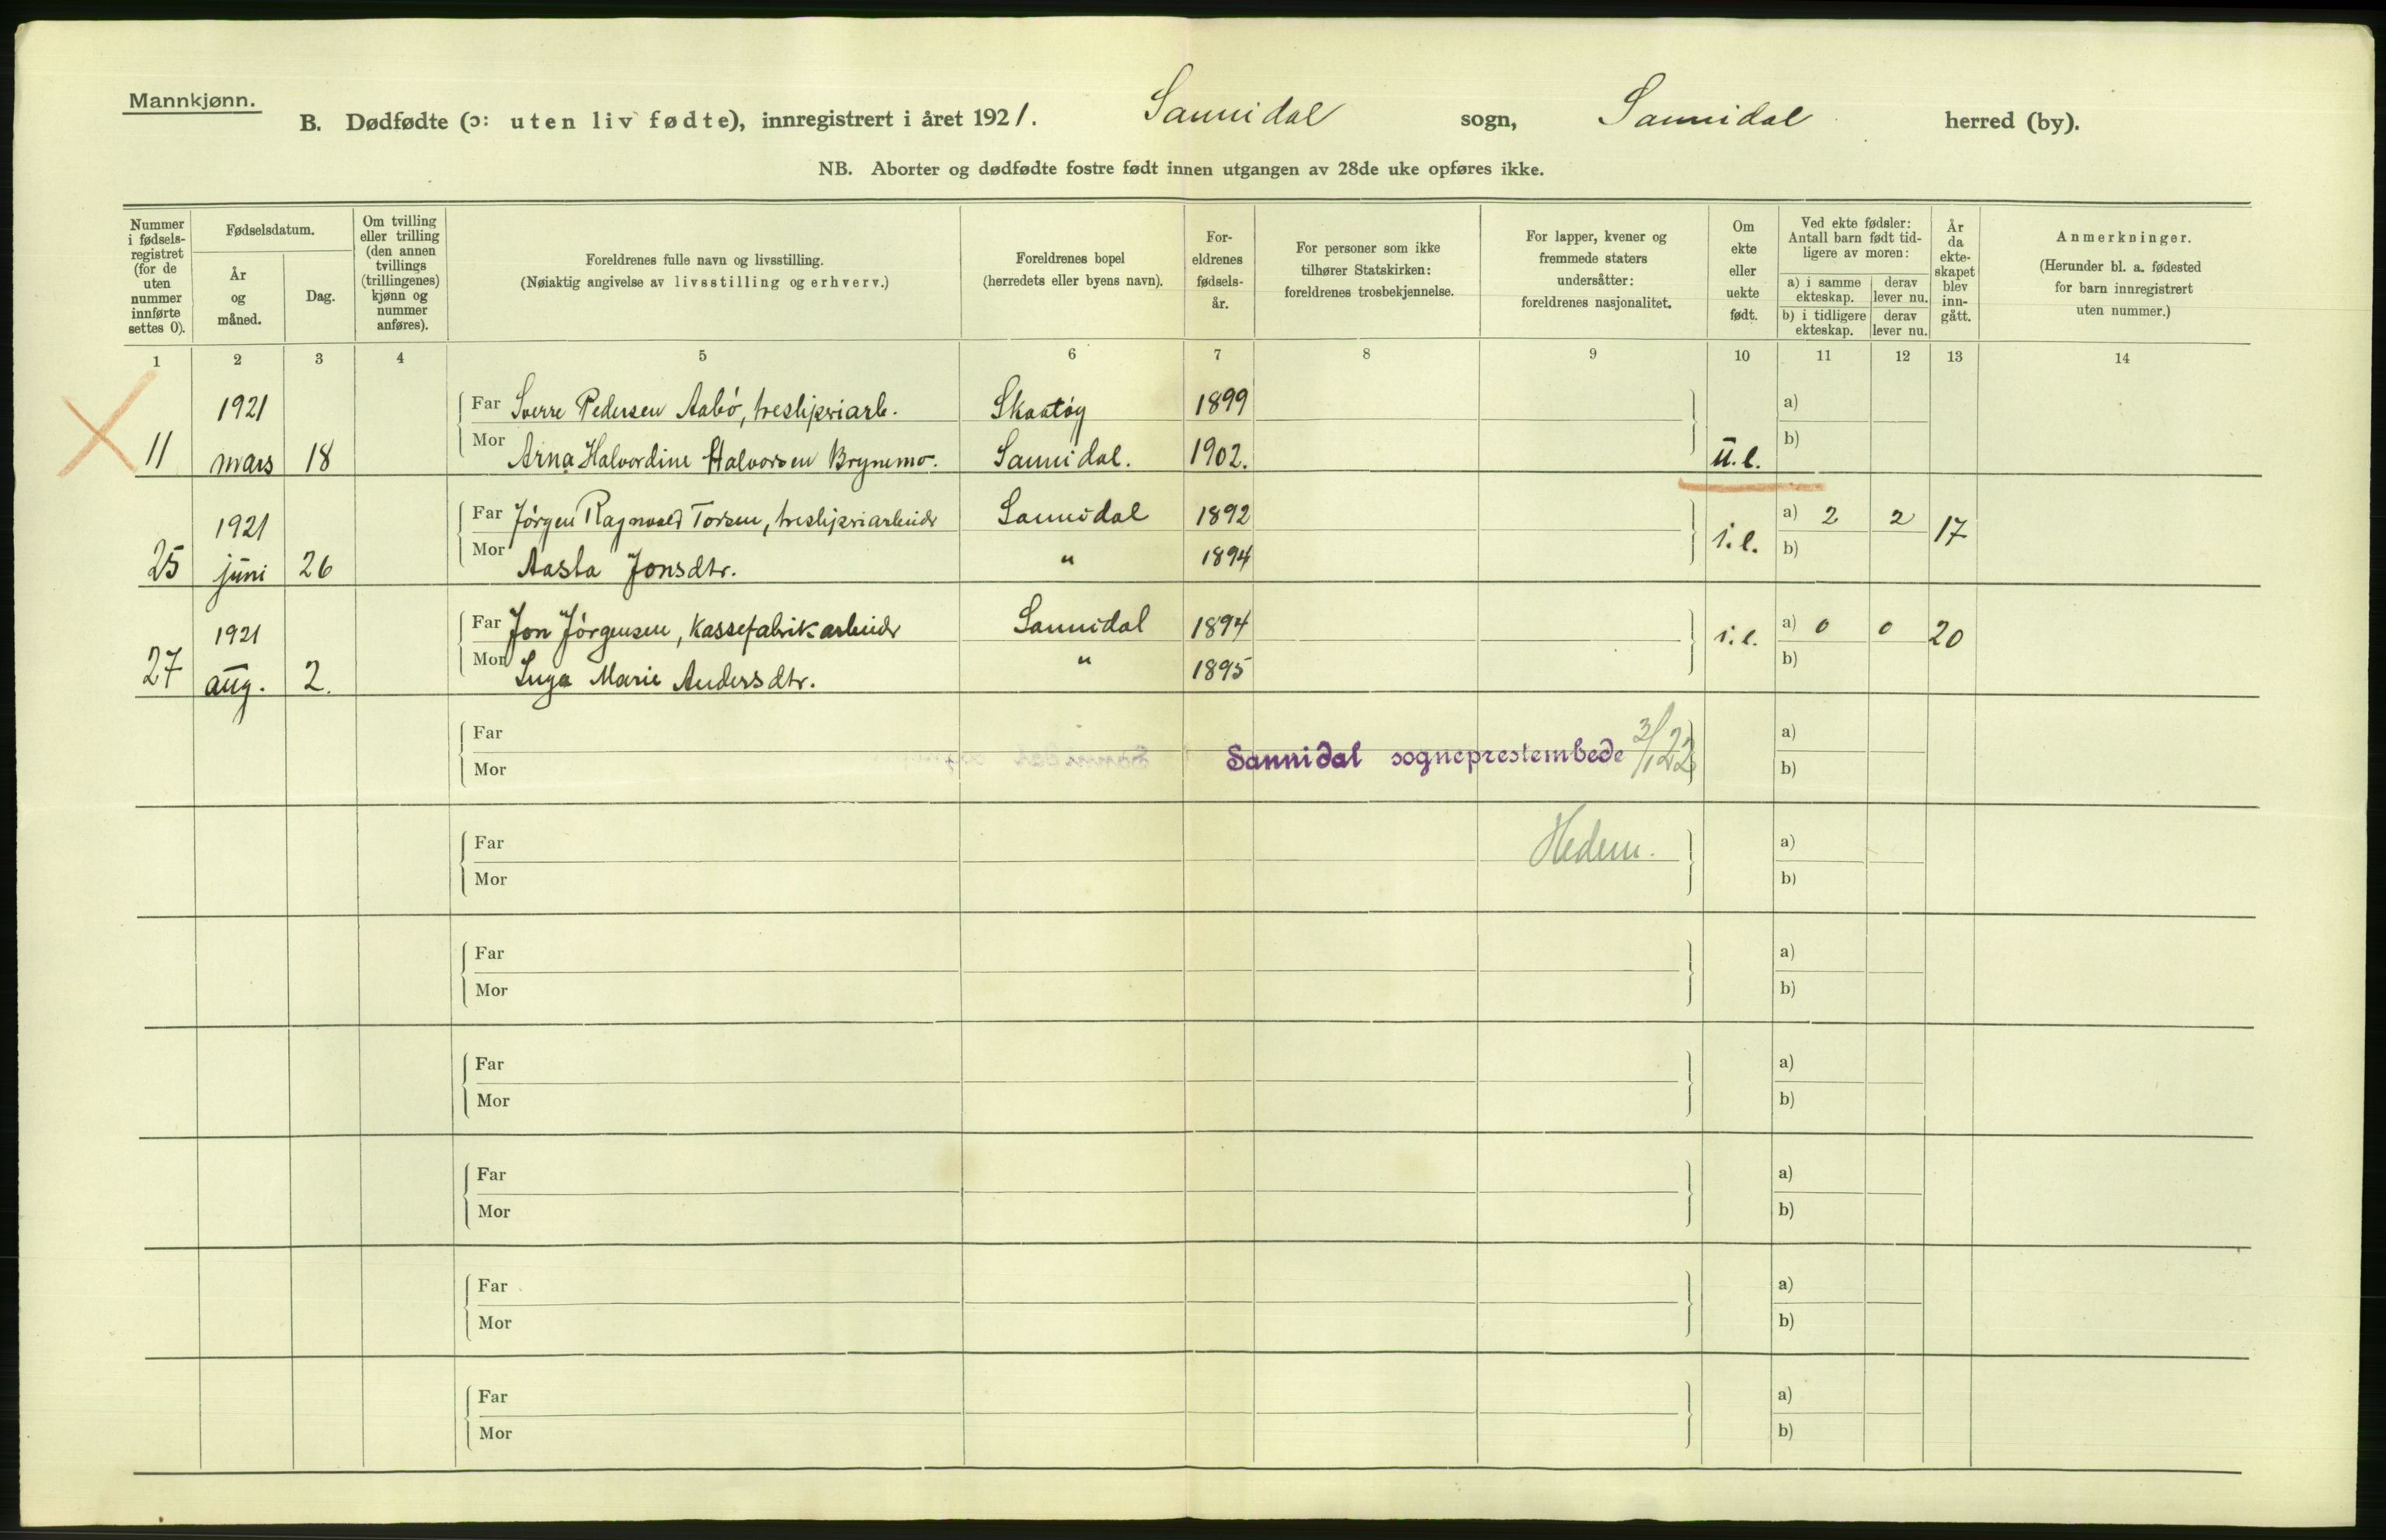 Mannkjønn.
B. Dødfødte (ɔ: uten liv fødte), innregistrert i året 1921. Sannidal sogn, Sannidal herred (by).
NB. Aborter og dødfødte fostre født innen utgangen av 28de uke opføres ikke.
Nummer i fødsels-registret (for de uten nummer innførte settes 0).
Fødselsdatum.
År og måned.
Dag.
Om tvilling eller trilling (den annen tvillings (trillingenes) kjønn og nummer anføres).
Foreldrenes fulle navn og livsstilling.
(Nøiaktig angivelse av livsstilling og erhverv.)
Foreldrenes bopel
(herredets eller byens navn).
For-eldrenes fødsels-år.
For personer som ikke tilhører Statskirken: foreldrenes trosbekjennelse.
For lapper, kvener og fremmede staters undersåtter: foreldrenes nasjonalitet.
Om ekte eller uekte født.
Ved ekte fødsler: Antall barn født tid-ligere av moren:
a) i samme ekteskap.
derav lever nu.
b) i tidligere ekteskap.
derav lever nu.
År da ekte-skapet blev inn-gått.
Anmerkninger.
(Herunder bl. a. fødested for barn innregistrert uten nummer.)
1 2 3 4 5 6 7 8 9 10 11 12 13 14
1921 Far Sverre Pedersen Aabö, tresliperiarb. Skaatöy 1899 a)
11 mars 18 Mor Arna Halvordine Halvorsen Brynemo. Sannidal. 1902. u.e. b)
1921 Far Jörgen Ragnvald Torsen, tresliperiarbeider Sannidal 1892 a) 2 2 17
25 juni 26 Mor Aasta Jonsdtr. " 1894 i.e. b)
1921 Far Jon Jörgensen, kassefabrikarbeider Sannidal 1894 i.e. a) 0 0 20
27 aug. 2. Mor Inga Marie Andersdtr. " 1895 b)
Far a)
Sannidal sogneprestembede 3/1 22
Mor b)
Far Hedem. a)
Mor b)
Far a)
Mor b)
Far a)
Mor b)
Far a)
Mor b)
Far a)
Mor b)
Far a)
Mor b)